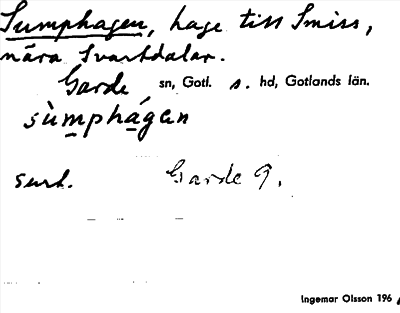 Sumphagen, hage till Smiss,
nära Svartdalar.
Garde sn, Gotl. s. hd, Gotlands län.
sùmphágen
Garde 9.
Ingemar Olsson 196